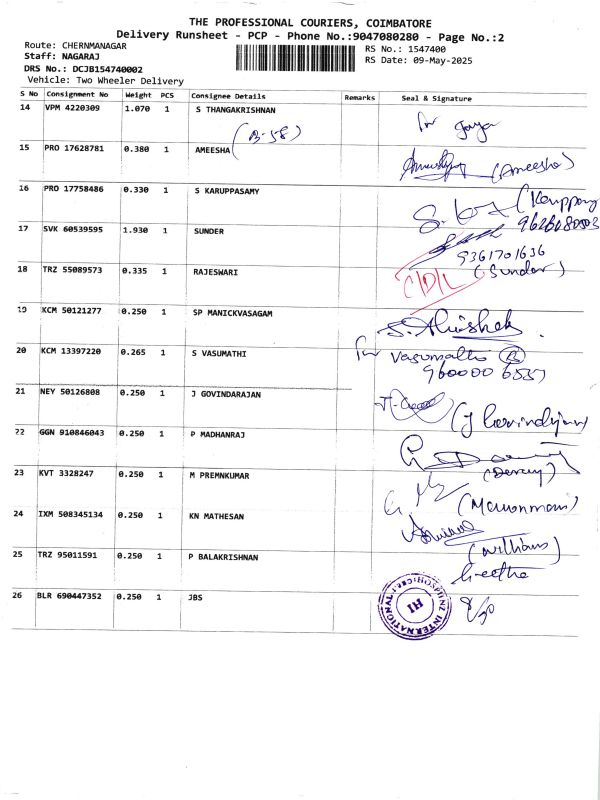 THE PROFESSIONAL COURIERS, COIMBATORE
Delivery Runsheet - PCP - Phone No.:9047080280 - Page No.:2
Route: CHERNMANAGAR
RS No.: 1547400
Staff: NAGARAJ
RS Date: 09-May-2025
DRS No.: DCJB154740002
Vehicle: Two Wheeler Delivery
S No Consignment No Weight PCS Consignee Details Remarks Seal & Signature
14 VPM 4220309 1.070 1 S THANGAKRISHNAN
(B-58)
15 PRO 17628781 0.380 1 AMEESHA (Ameesha)
16 PRO 17758486 0.330 1 S KARUPPASAMY
17 SVK 60539595 1.930 1 SUNDER
9361701636
(Sunder)
18 TRZ 55089573 0.335 1 RAJESWARI
19 KCM 50121277 0.250 1 SP MANICKVASAGAM S. Abishek
20 KCM 13397220 0.265 1 S VASUMATHI Vasumathi
21 NEY 50126808 0.250 1 J GOVINDARAJAN
22 GGN 910846043 0.250 1 P MADHANRAJ
23 KVT 3328247 0.250 1 M PREMNKUMAR
24 IXM 508345134 0.250 1 KN MATHESAN
25 TRZ 95011591 0.250 1 P BALAKRISHNAN Geetha
26 BLR 690447352 0.250 1 JBS